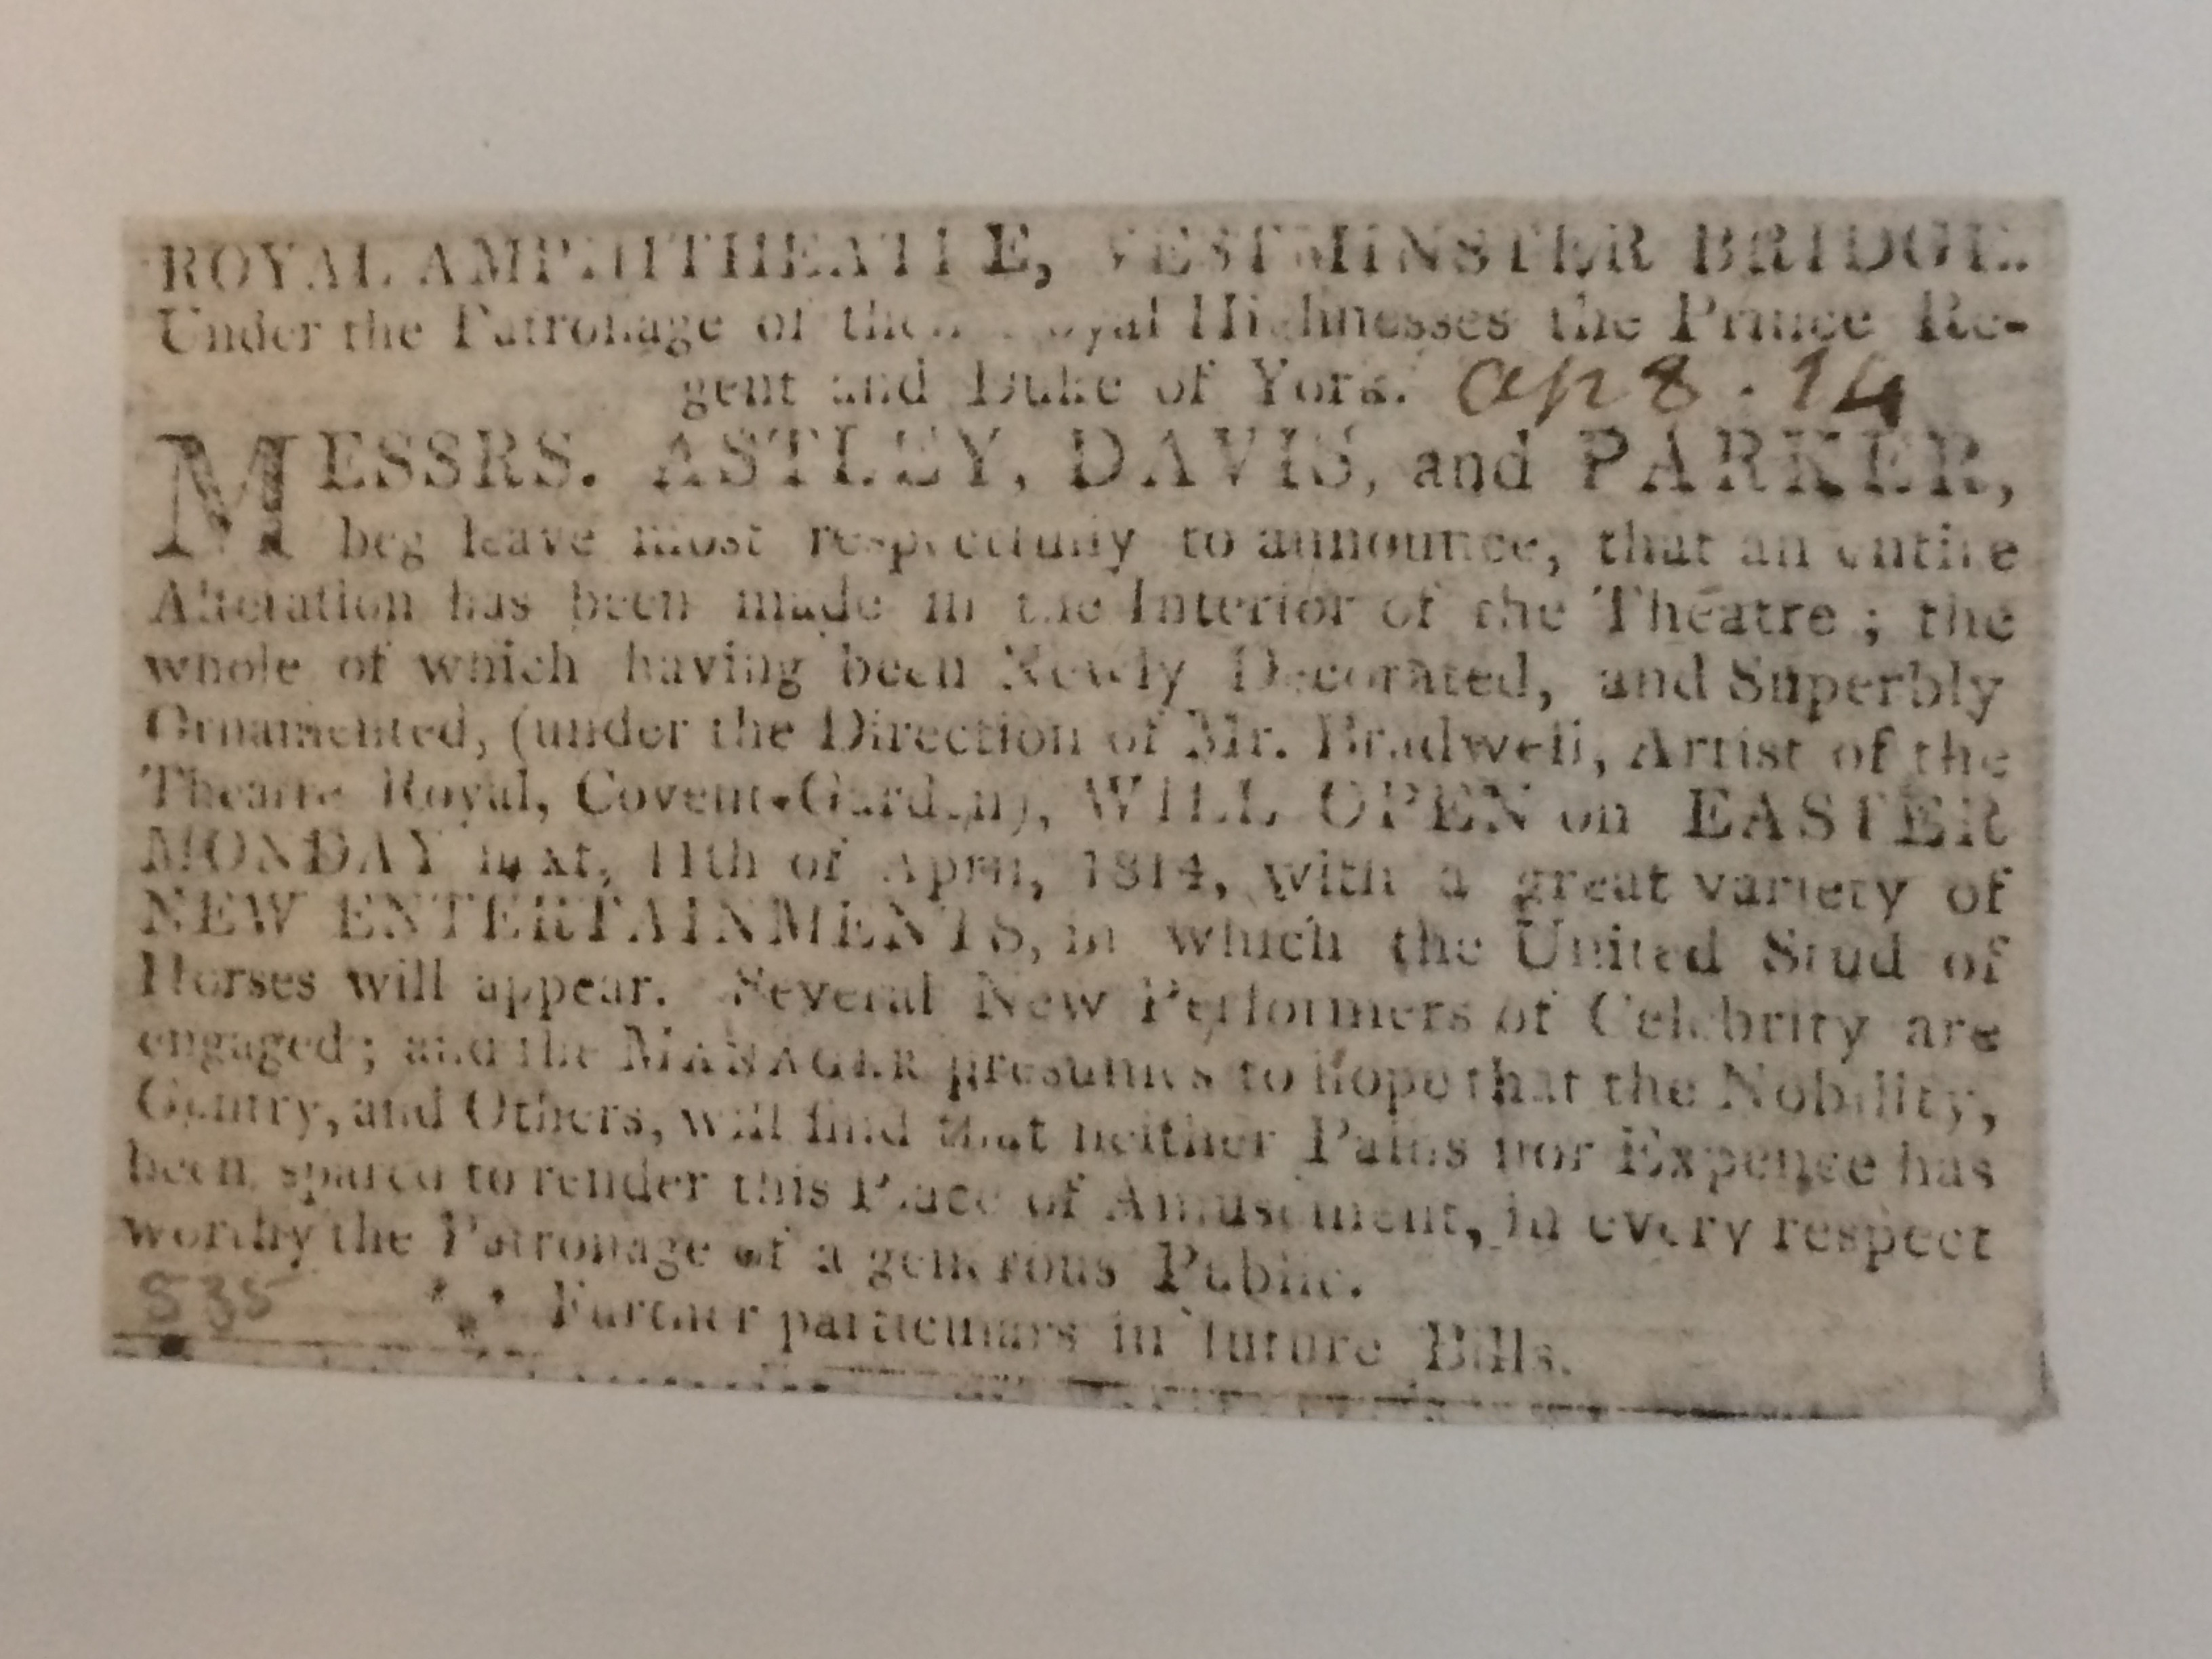 ROYAL AMPHITHEATRE, WESTMINSTER BRIDGE.
Under the Patronage of their Royal Highnesses the Prince Re-
gent and Duke of York. Ap 8 . 14
MESSRS. ASTLEY, DAVIS, and PARKER,
beg leave most respectfully to announce, that an entire
Alteration has been made in the Interior of the Theatre; the
whole of which having been Newly Decorated, and Superbly
Ornamented, (under the Direction of Mr. Bradwell, Artist of the
Theatre Royal, Covent-Garden), WILL OPEN on EASTER
MONDAY next, 11th of April, 1814, with a great variety of
NEW ENTERTAINMENTS, in which the United Stud of
Horses will appear. Several New Performers of Celebrity are
engaged; and the MANAGER presumes to hope that the Nobility,
Gentry, and Others, will find that neither Pains nor Expence has
been spared to render this Place of Amusement, in every respect
worthy the Patronage of a generous Public.
535 *⁎* Further particulars in future Bills.